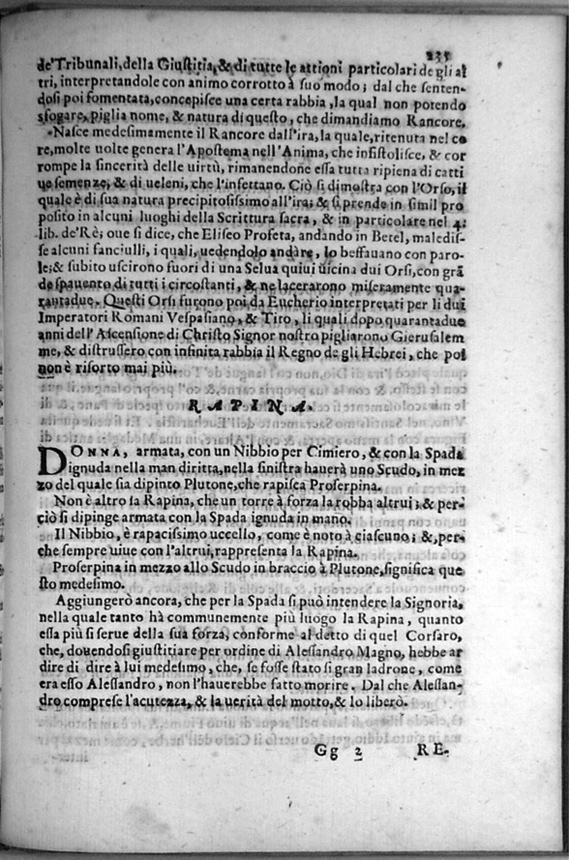 235
de'Tribunali, della Giustitia, & di tutte le attioni particolari de gli al
tri, interpretandole con animo corrotto à suo modo; dal che senten-
dosi poi fomentata, concepisce una certa rabbia, la qual non potendo
sfogare, piglia nome, & natura di questo, che dimandiamo Rancore.
Nasce medesimamente il Rancore dall'ira, la quale, ritenuta nel co
re, molte uolte genera l'Apostema nell'Anima, che infistolisce, & cor
rompe la sincerità delle uirtù, rimanendone essa tutta ripiena di catti
ue semenze, & di ueleni, che l'infettano. Ciò si dimostra con l'Orso, il
quale è di sua natura precipitosissimo all'ira; & si prende in simil pro
posito in alcuni luoghi della Scrittura sacra, & in particolare nel 4.
lib. de'Rè; oue si dice, che Eliseo Profeta, andando in Betel, maledis-
se alcuni fanciulli, i quali, uedendolo andare, lo beffauano con paro-
le; & subito uscirono fuori di una Selua quiui uicina dui Orsi, con grā
de spauento di tutti i circostanti, & ne lacerarono miseramente qua-
rantadue. Questi Orsi furono poi da Eucherio interpretati per li dui
Imperatori Romani Vespasiano, & Tito, li quali dopo quarantadue
anni dell'Ascensione di Christo Signor nostro pigliarono Gierusalem
me, & distrussero con infinita rabbia il Regno de gli Hebrei, che poi
non è risorto mai più.
RAPINA.
DONNA, armata, con un Nibbio per Cimiero, & con la Spada
ignuda nella man diritta, nella sinistra hauerà uno Scudo, in mez
zo del quale sia dipinto Plutone, che rapisca Proserpina.
Non è altro la Rapina, che un torre à forza la robba altrui; & per-
ciò si dipinge armata con la Spada ignuda in mano.
Il Nibbio, è rapacissimo uccello, come è noto à ciascuno; &, per-
che sempre uiue con l'altrui, rappresenta la Rapina.
Proserpina in mezzo allo Scudo in braccio à Plutone, significa que
sto medesimo.
Aggiungerò ancora, che per la Spada si può intendere la Signoria,
nella quale tanto hà communemente più luogo la Rapina, quanto
essa più si serue della sua forza, conforme al detto di quel Corsaro,
che, douendosi giustitiare per ordine di Alessandro Magno, hebbe ar
dire di dire à lui medesimo, che, se fosse stato si gran ladrone, come
era esso Alessandro, non l'hauerebbe fatto morire. Dal che Alessan-
dro comprese l'acutezza, & la uerità del motto, & lo liberò.
Gg 2 RE-